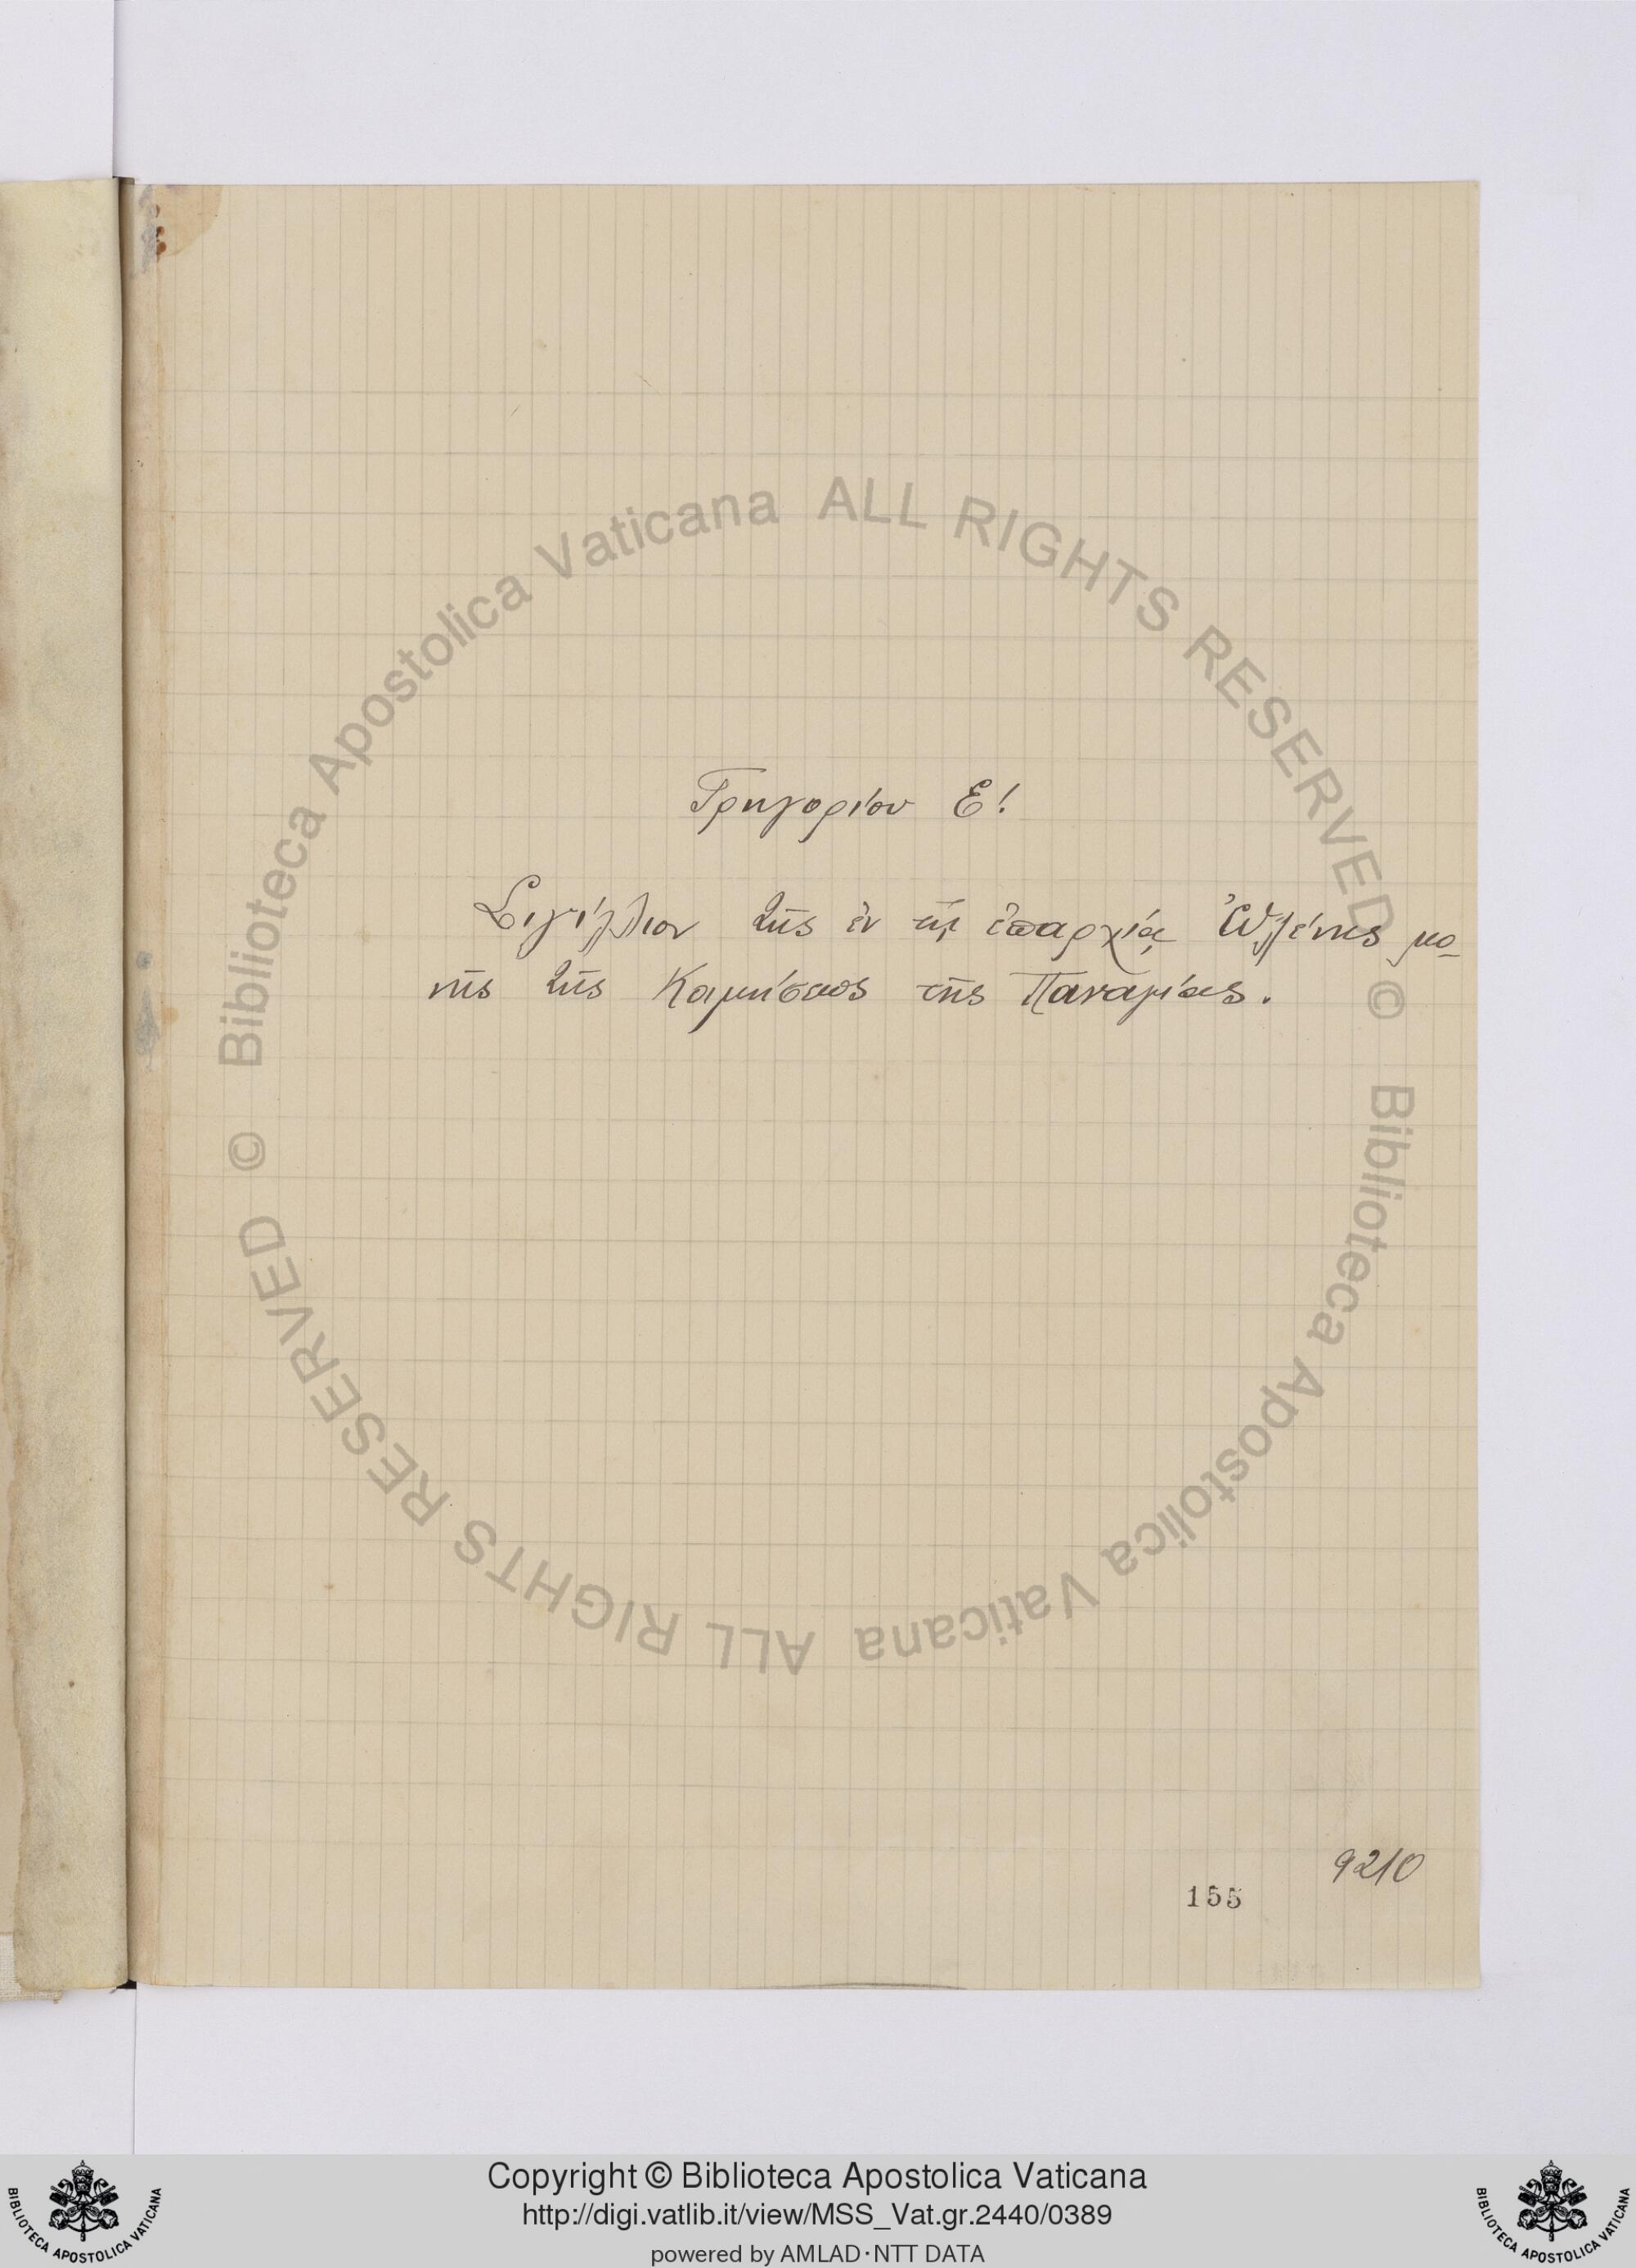 Γρηγορίου Ε΄.
Σιγίλλιον τῆς ἐν τῇ ἐπαρχίᾳ Ὠλένης μο-
νῆς τῆς Κοιμήσεως τῆς Παναγίας.
9210
155
Biblioteca Apostolica Vaticana ALL RIGHTS RESERVED ©
Biblioteca Apostolica Vaticana ALL RIGHTS RESERVED ©
Copyright © Biblioteca Apostolica Vaticana
http://digi.vatlib.it/view/MSS_Vat.gr.2440/0389
powered by AMLAD·NTT DATA
BIBLIOTECA APOSTOLICA VATICANA
BIBLIOTECA APOSTOLICA VATICANA